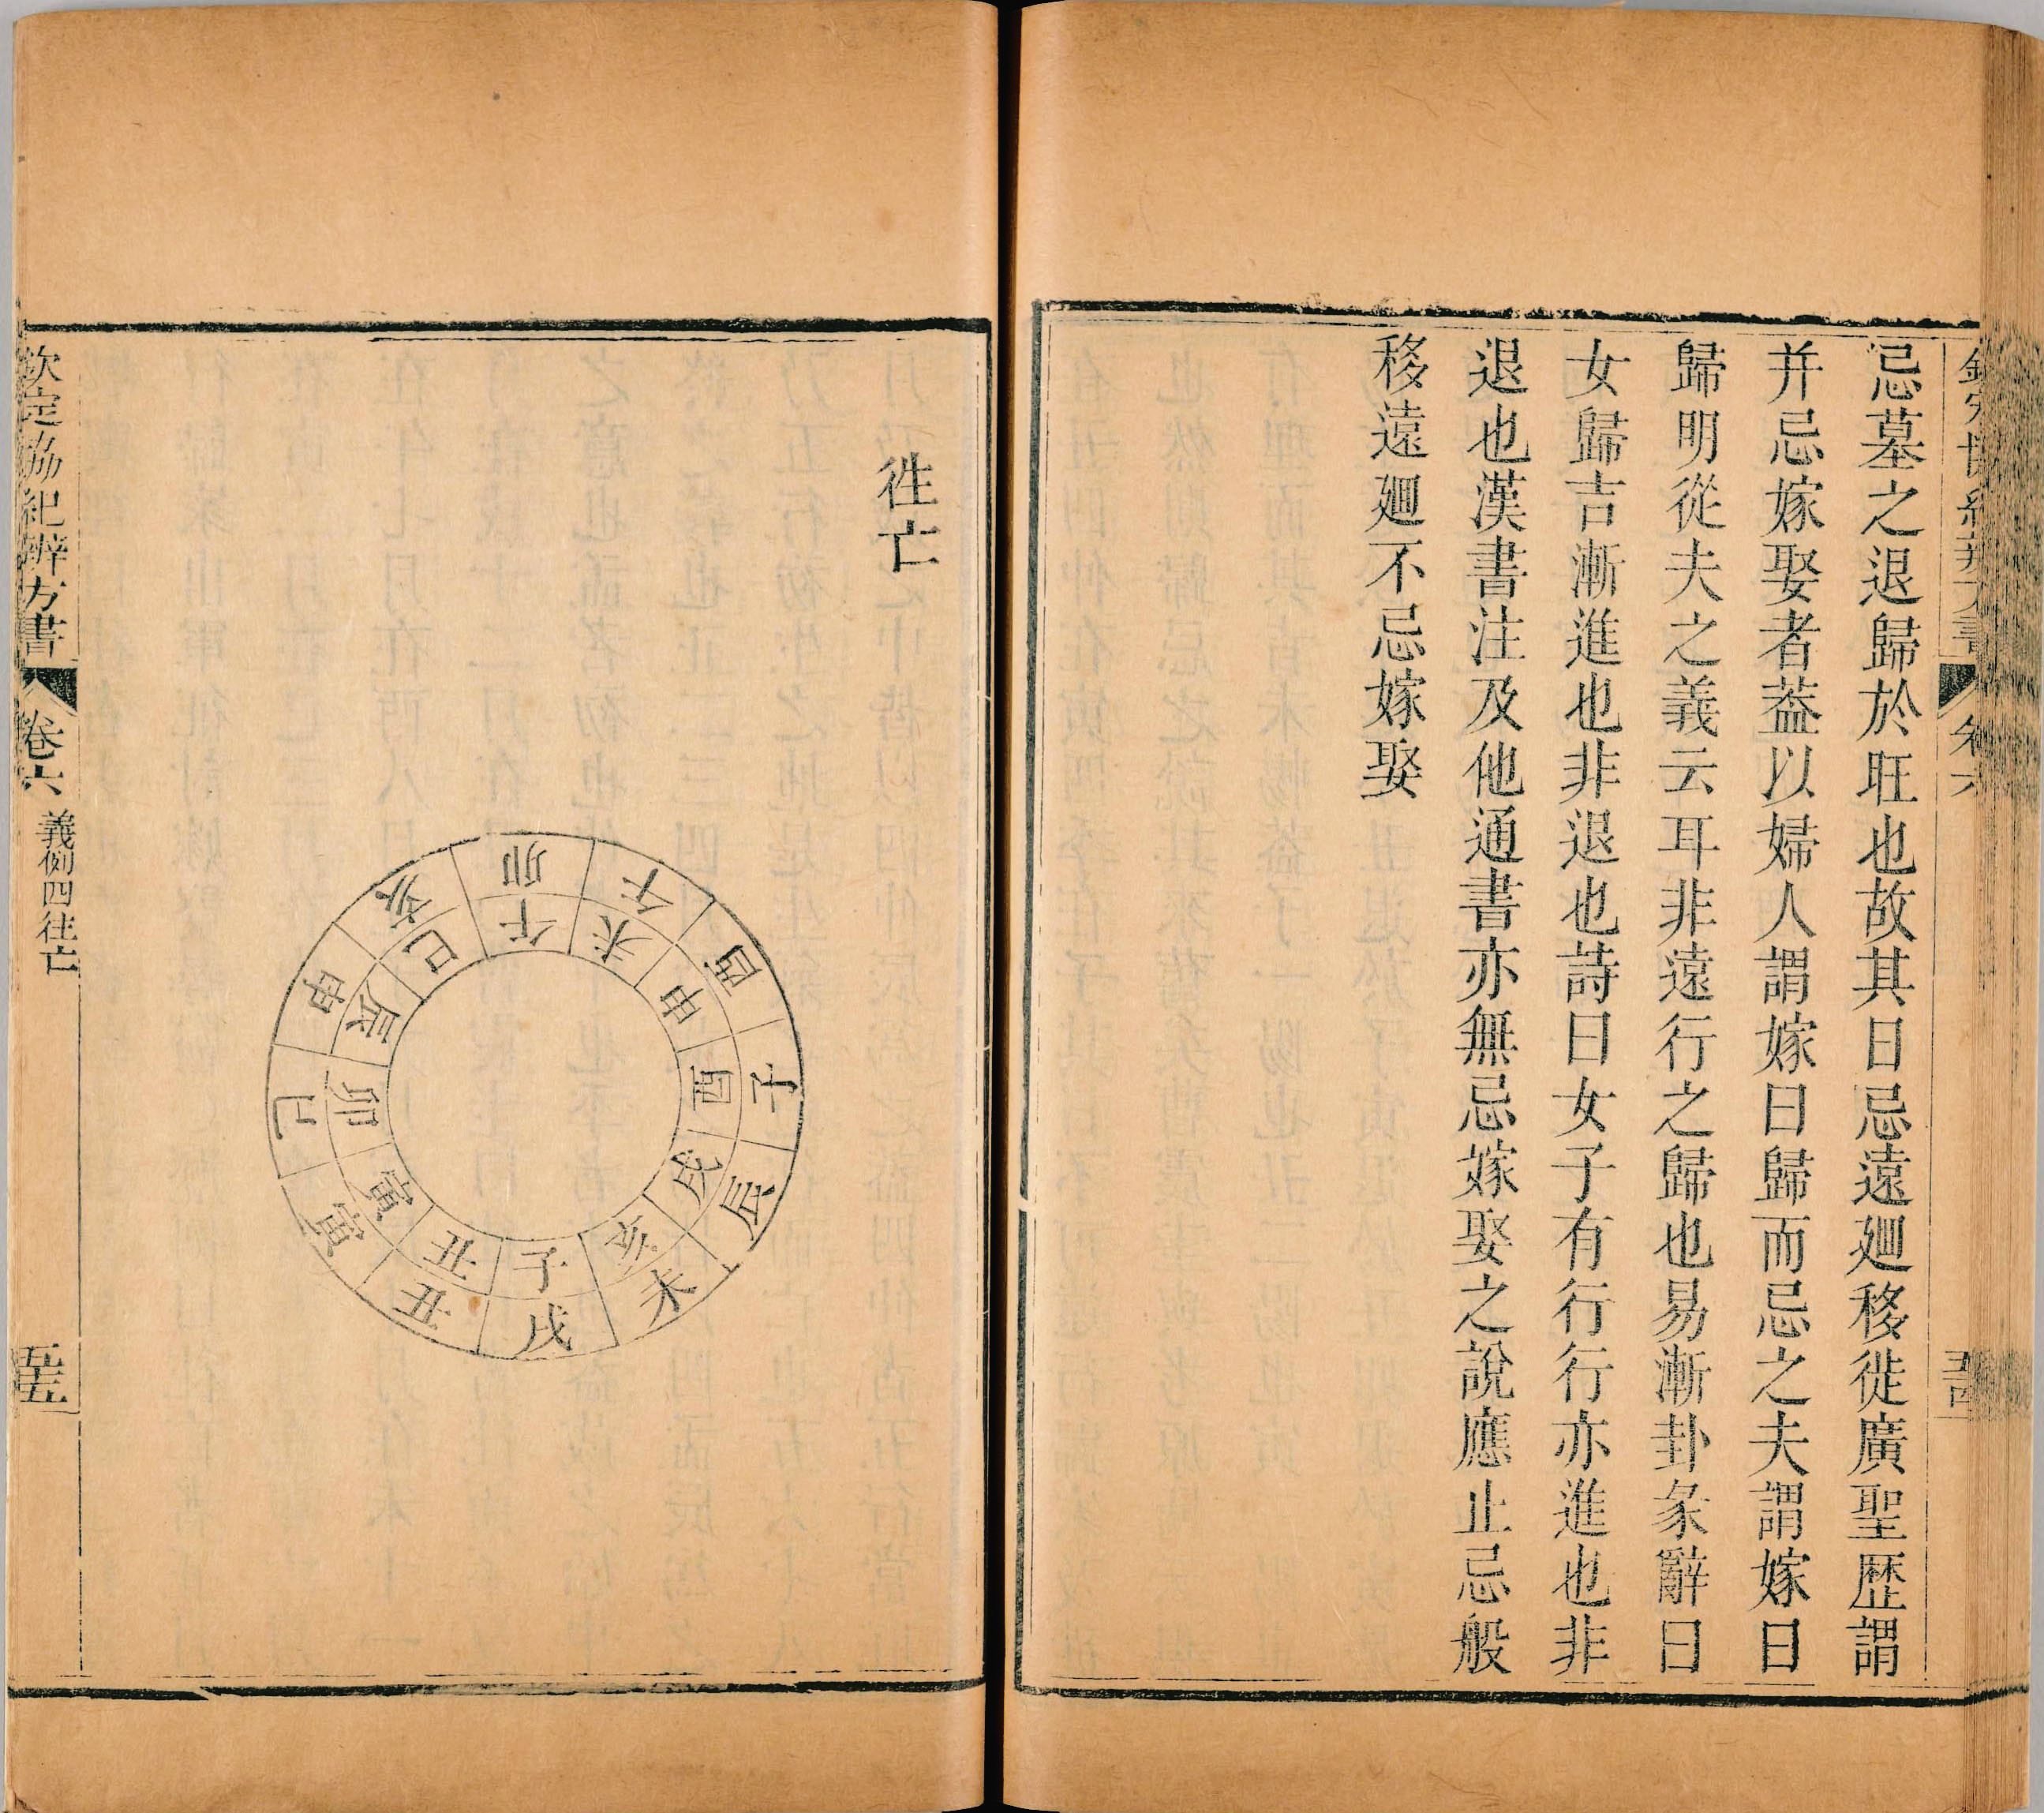 忌墓之退歸於旺也故其日忌遠廻移徙廣聖歴謂
并忌嫁娶者葢以婦人謂嫁曰歸而忌之夫謂嫁曰
歸明從夫之義云耳非遠行之歸也易漸卦彖辭曰
女歸吉漸進也非退也詩曰女子有行行亦進也非
退也漢書注及他通書亦無忌嫁娶之說應止忌般
移遠廻不忌嫁娶
徃亡
戌丑寅巳申亥卯午酉子辰未
子丑寅卯辰巳午未申酉戌亥
欽定協紀辨方書
卷六
義例四
往亡